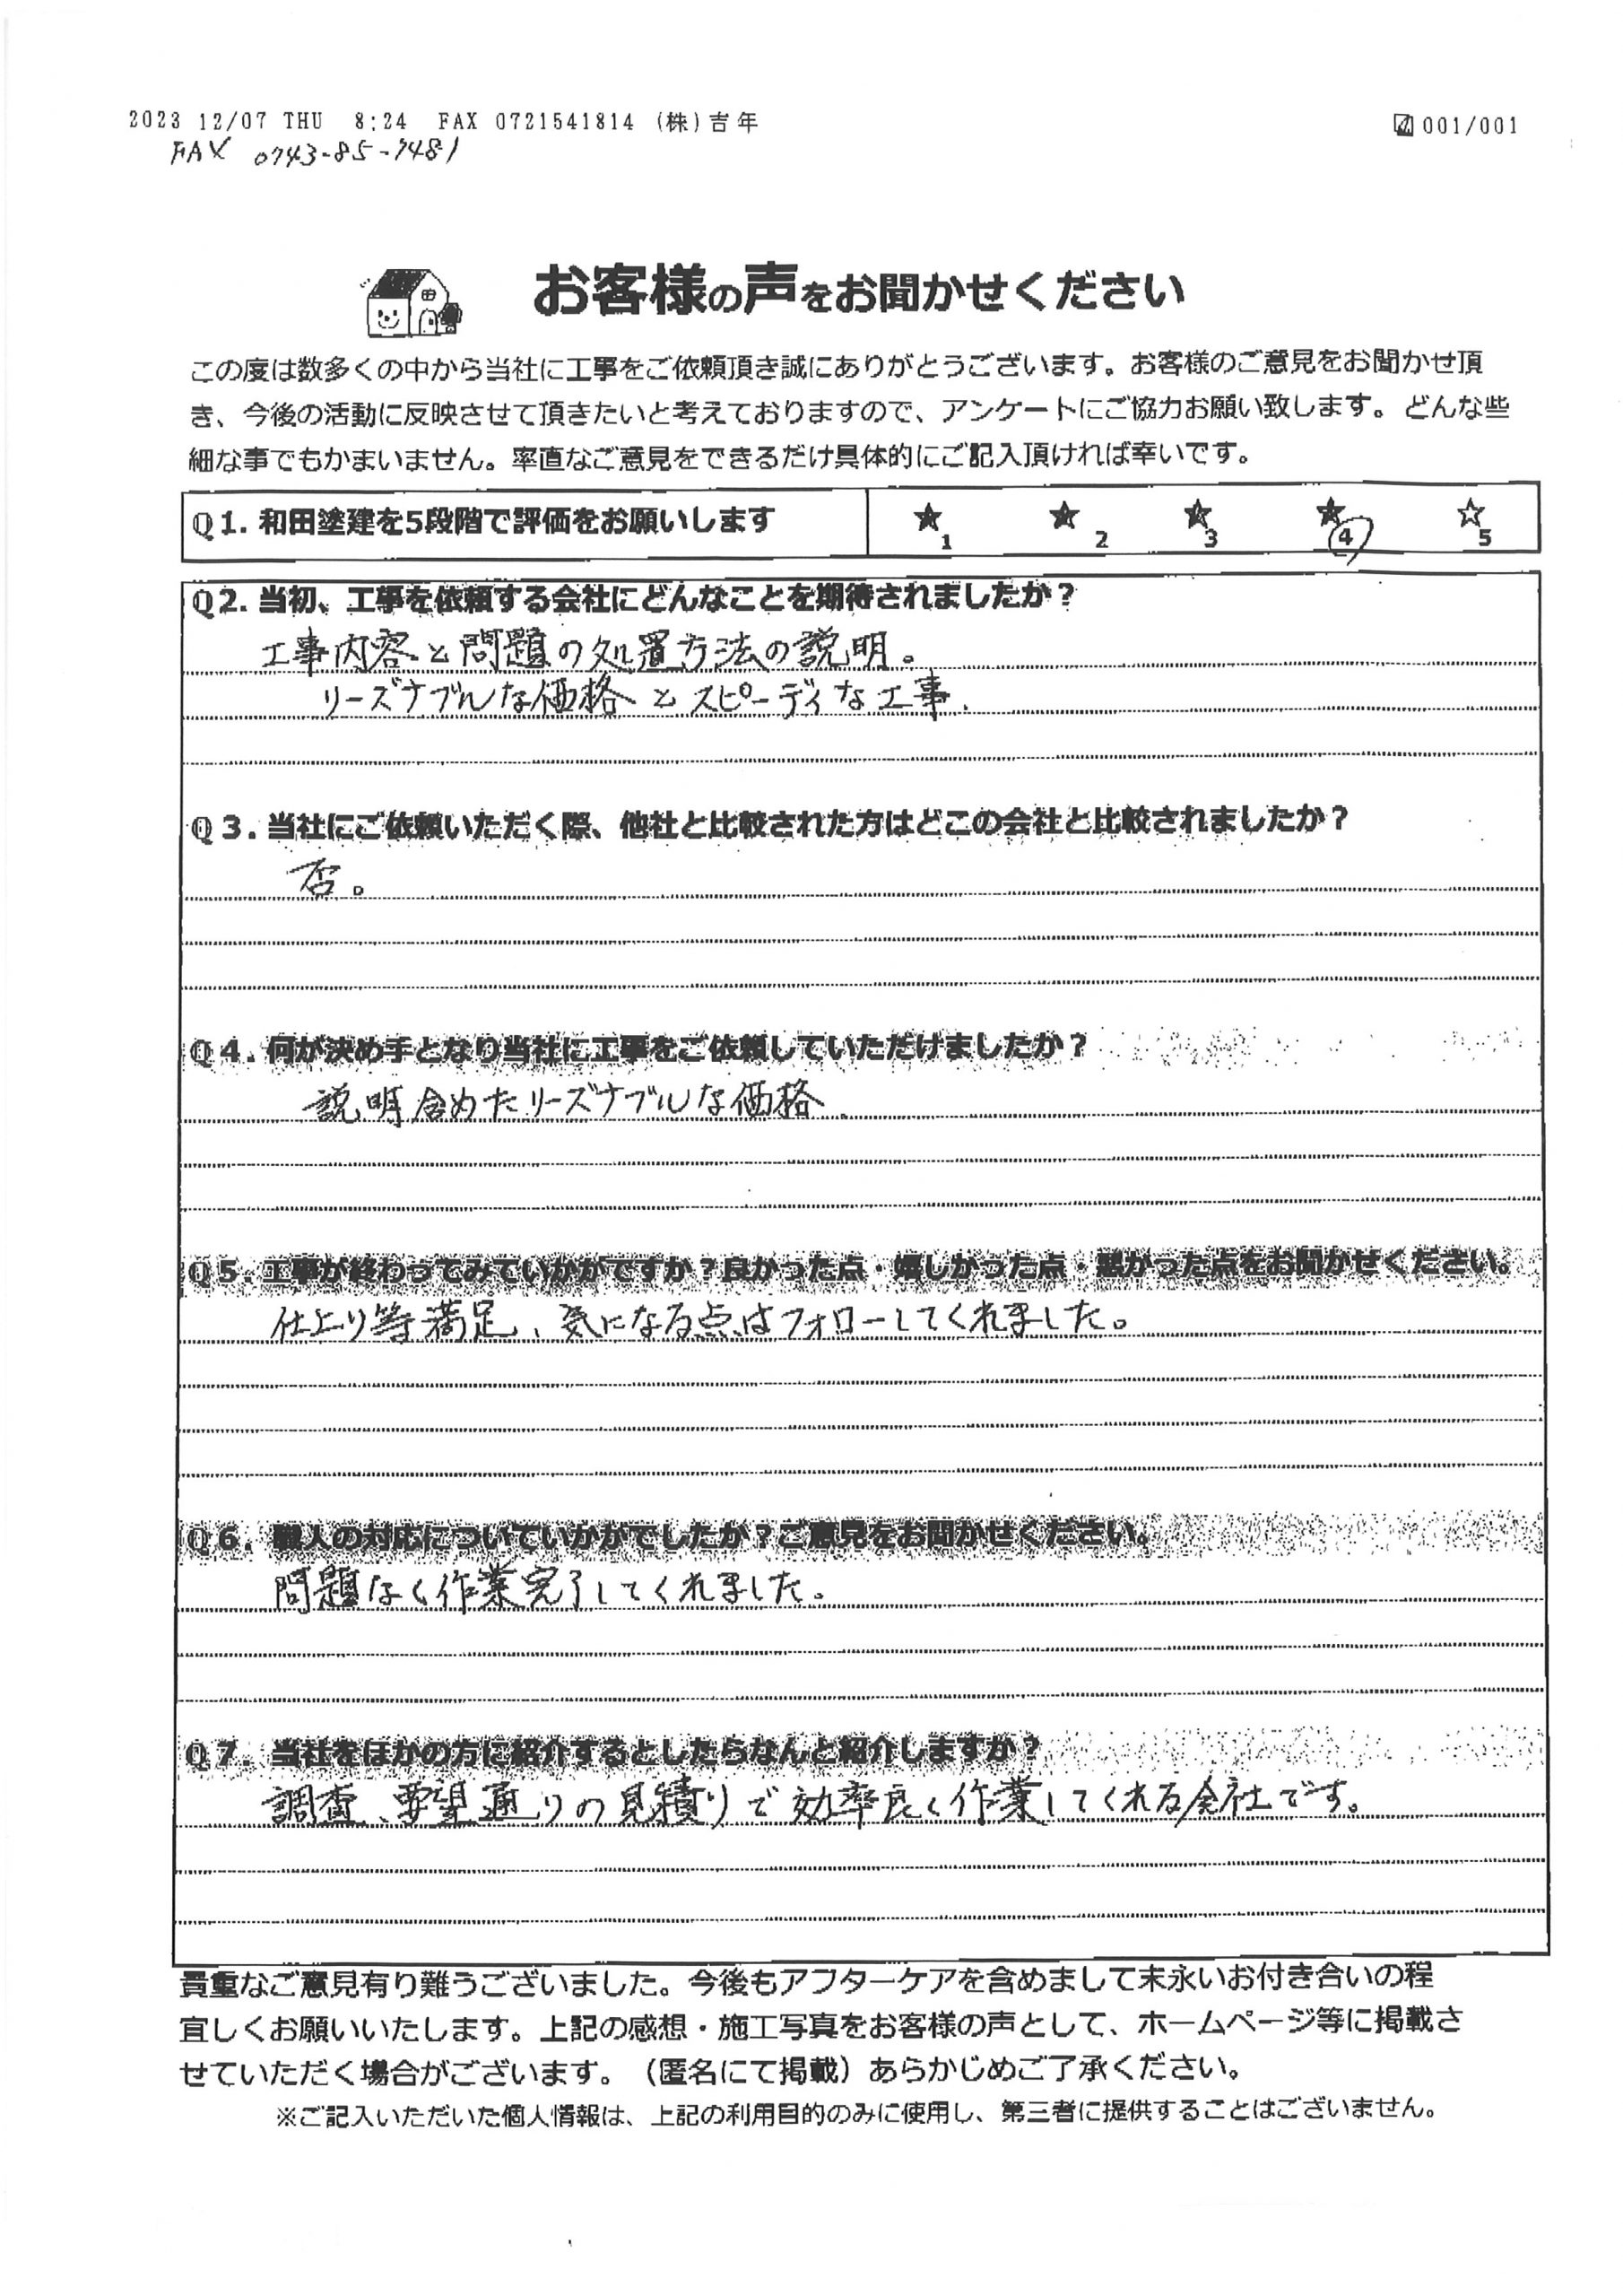 2023 12/07 THU 8:24 FAX 0721541814 (株)吉年 001/001
FAX 0743-85-7481
お客様の声をお聞かせください
この度は数多くの中から当社に工事をご依頼頂き誠にありがとうございます。お客様のご意見をお聞かせ頂
き、今後の活動に反映させて頂きたいと考えておりますので、アンケートにご協力お願い致します。どんな些
細な事でもかまいません。率直なご意見をできるだけ具体的にご記入頂ければ幸いです。
Q1. 和田塗建を5段階で評価をお願いします ★1 ★2 ★3 ★4 ☆5
Q2. 当初、工事を依頼する会社にどんなことを期待されましたか？
工事内容と問題の処置方法の説明。
リーズナブルな価格とスピーディな工事.
Q3. 当社にご依頼いただく際、他社と比較された方はどこの会社と比較されましたか？
否。
Q4. 何が決め手となり当社に工事をご依頼していただけましたか？
説明含めたリーズナブルな価格.
Q5. 工事が終わってみていかがですか？良かった点・嬉しかった点・悪かった点をお聞かせください。
仕上り等満足、気になる点はフォローしてくれました。
Q6. 職人の対応についていかがでしたか？ご意見をお聞かせください。
問題なく作業完了してくれました。
Q7. 当社をほかの方に紹介するとしたらなんと紹介しますか？
調査、要望通りの見積りで効率良く作業してくれる会社です。
貴重なご意見有り難うございました。今後もアフターケアを含めまして末永いお付き合いの程
宜しくお願いいたします。上記の感想・施工写真をお客様の声として、ホームページ等に掲載さ
せていただく場合がございます。（匿名にて掲載）あらかじめご了承ください。
※ご記入いただいた個人情報は、上記の利用目的のみに使用し、第三者に提供することはございません。